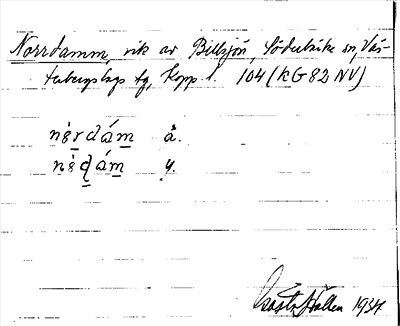 Norrdamm, vik av Billsjön, Söderbärke sn, Väs-
terbergslags tg, Kopp. l. 104 (KG82NV)
nȯ́rdám å.
nȯ́ḍám y.
Gösta Hallen 1934